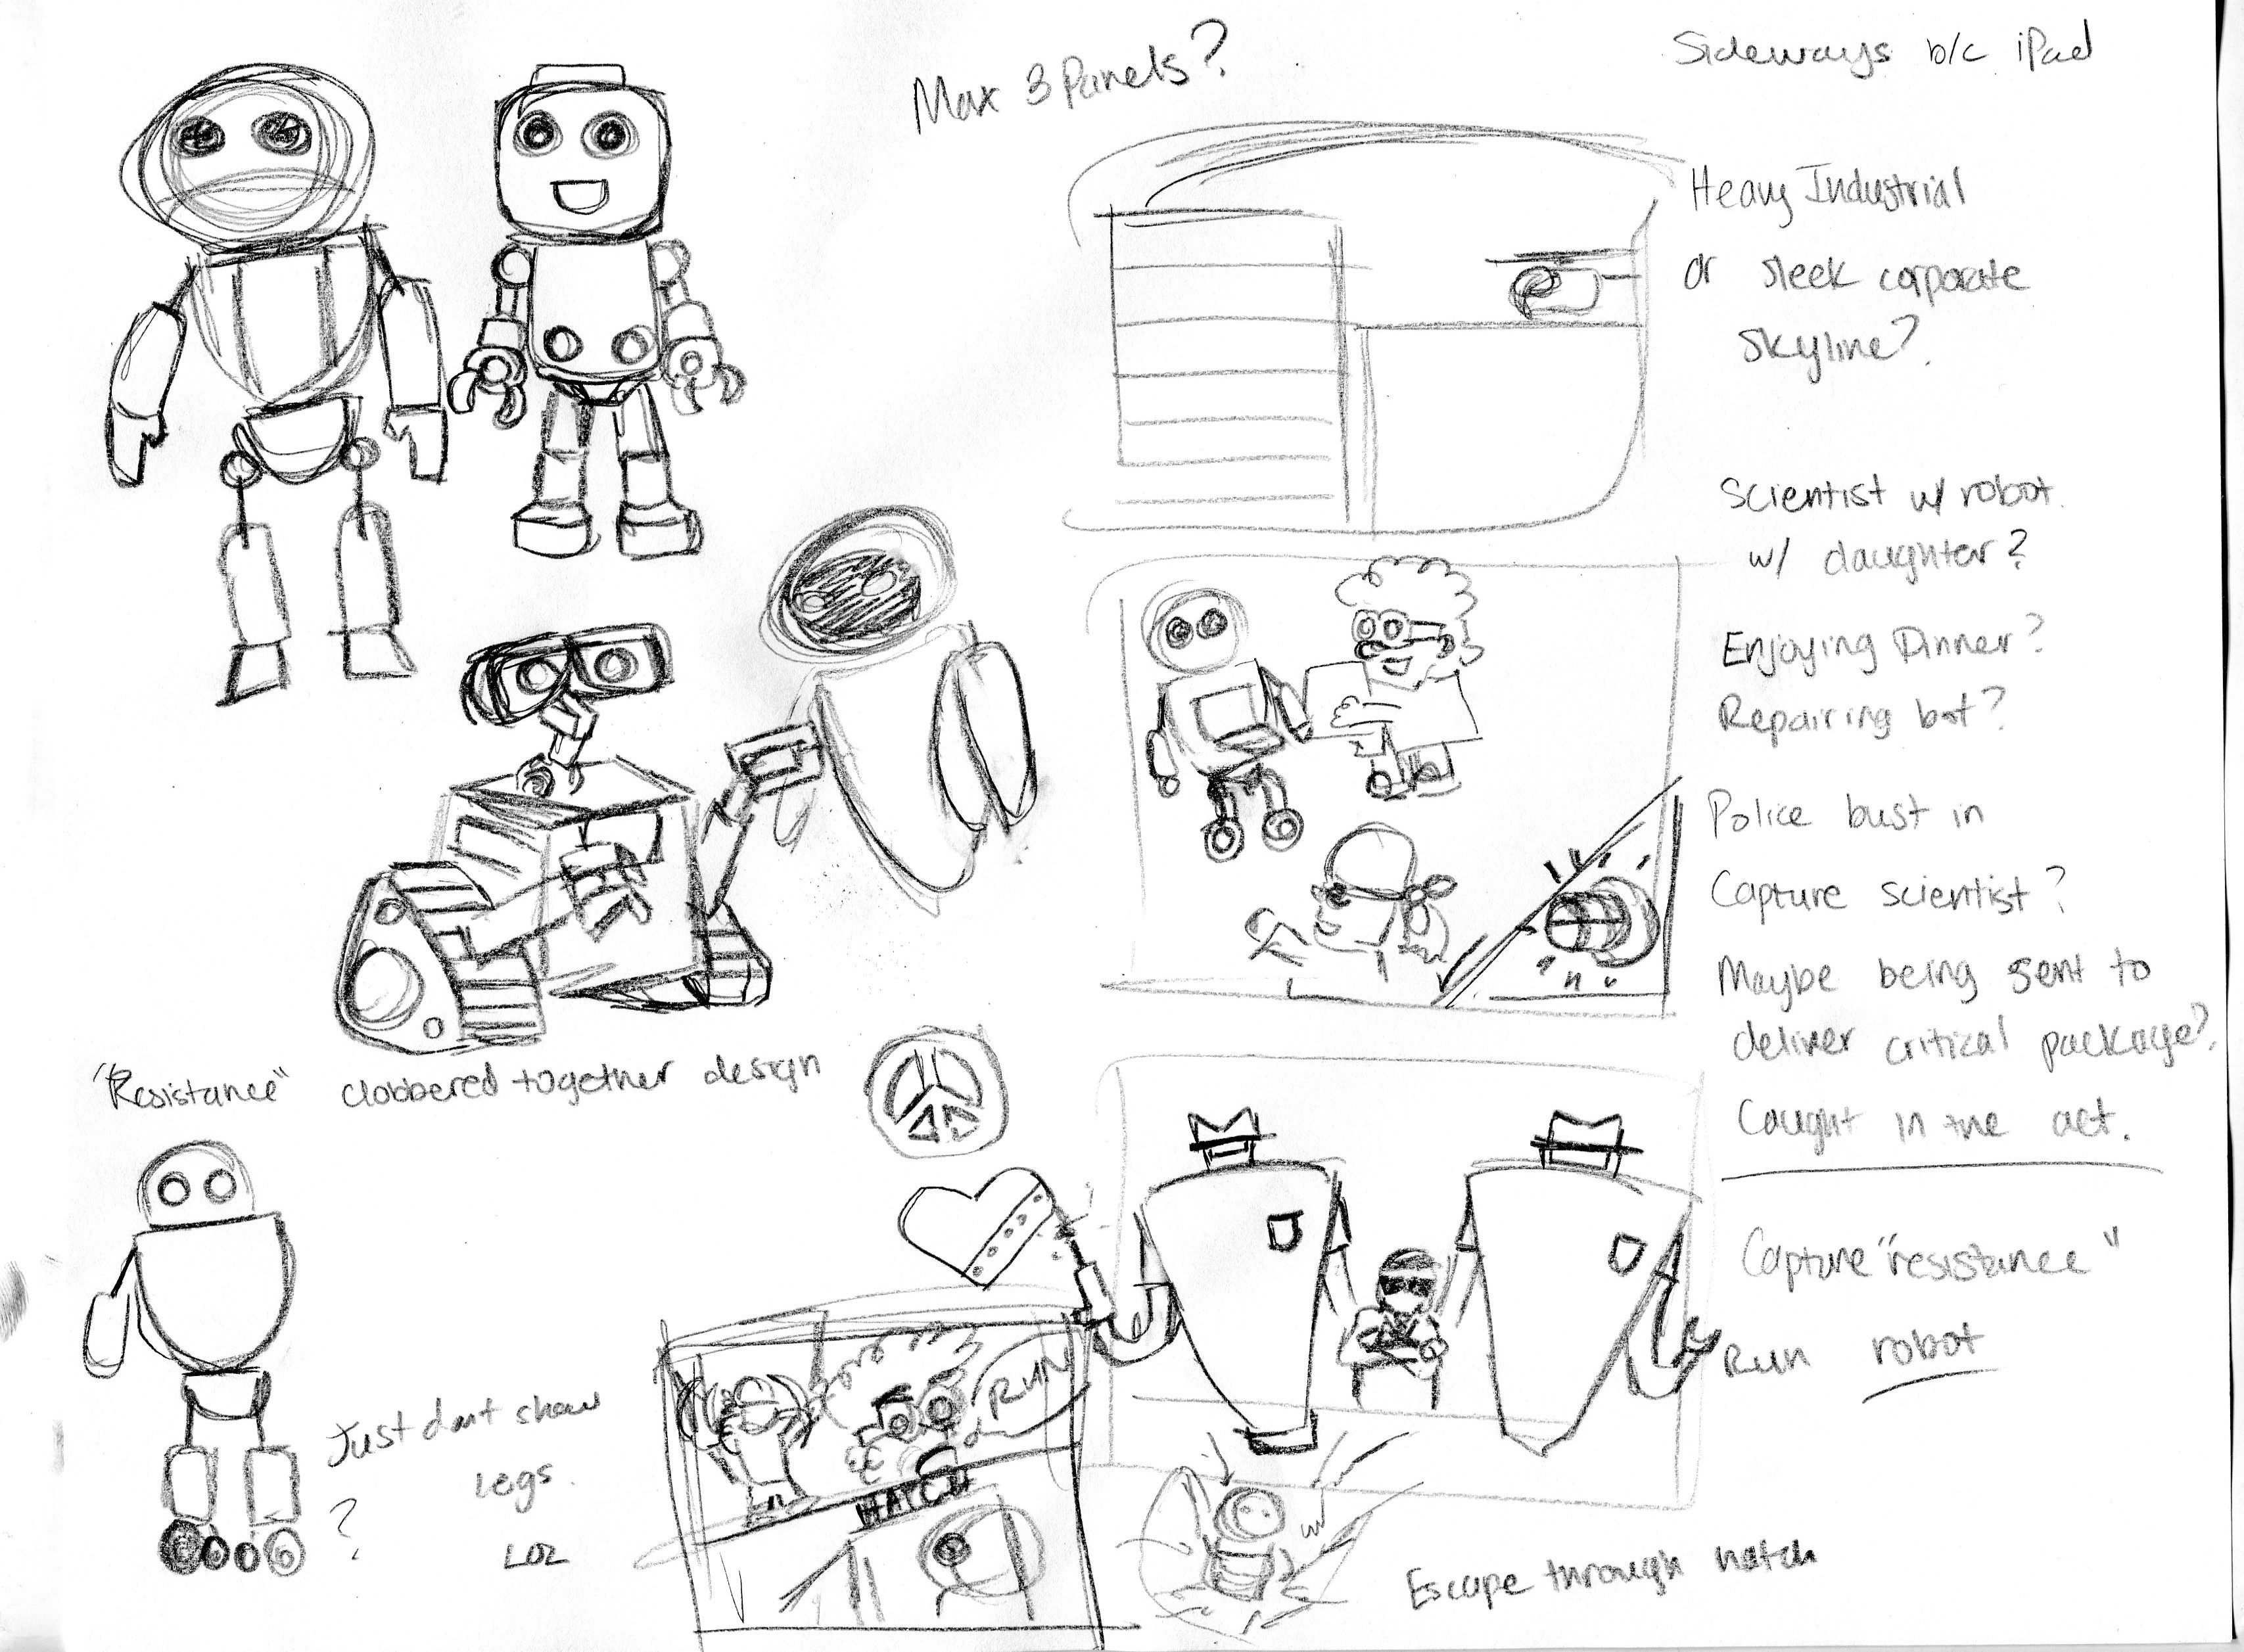 Max 3 Panels?
Sideways b/c iPad
Heavy Industrial
or sleek corporate
Skyline?
Scientist w/ robot.
w/ daughter?
Enjoying Dinner?
Repairing bot?
Police bust in
Capture scientist?
Maybe being sent to
deliver critical package?
Caught in the act.
Capture "resistance"
Run robot
"Resistance" clobbered together design
Just dont show
legs.
LOL
?
RUN
HATCH
Escape through hatch